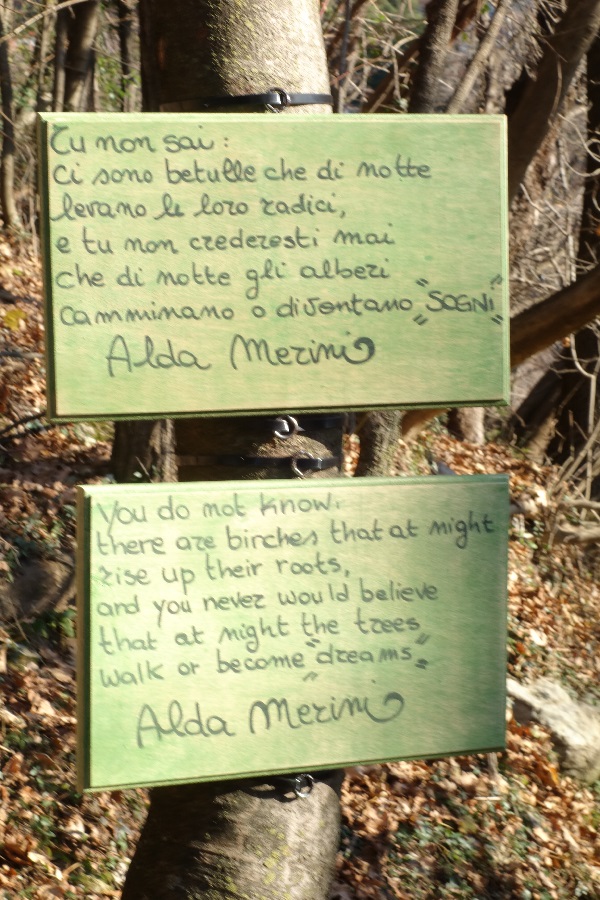 Tu non sai:
ci sono betulle che di notte
levano le loro radici,
e tu non crederesti mai
che di notte gli alberi
camminano o diventano "SOGNI"
Alda Merini
you do not know.
there are birches that at night
rise up their roots,
and you never would believe
that at night the trees
walk or become "dreams"
Alda Merini